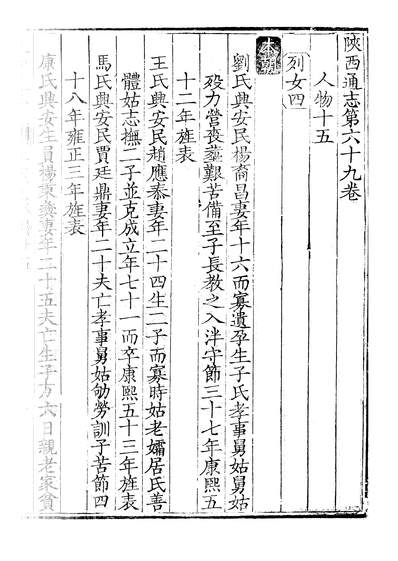 陝西通志第六十九卷
人物十五
列女四
本朝
劉氏興安民楊裔昌妻年十六而寡遺孕生子氏孝事舅姑舅姑
歿力營喪葬艱苦備至子長教之入泮守節三十七年康熙五
十二年旌表
王氏興安民趙應泰妻年二十四生二子而寡時姑老孀居氏善
體姑志撫二子並克成立年七十一而卒康熙五十三年旌表
馬氏興安民賈廷鼎妻年二十夫亡孝事舅姑劬勞訓子苦節四
十八年雍正三年旌表
康氏興安生員楊東奠妻年二十五夫亡生子方六日親老家貧